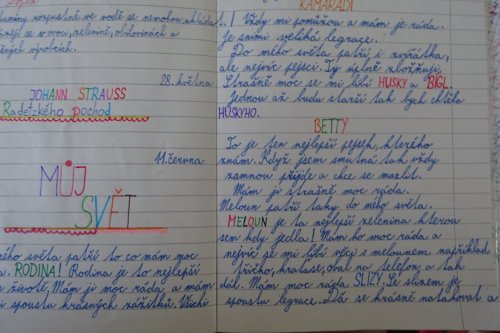 taminy rozpustné ve vodě se nemohou ukládat
v ovoci, zelenině, obilovinách a
výrobcích.
28. května
JOHANN STRAUSS
Radetzkého pochod
11. června
MŮJ
SVĚT
světa patří to co mám moc
RODINA! Rodina je to nejlepší
životě. Mám ji moc ráda a mám
spoustu krásných zážitků. Všichi
KAMARÁDI
! Vždy mi pomůžou a mám je ráda.
Je snimi veliká legrace.
Do mého světa patří i zvířátka,
ale nejvíc pejsci. Ty úplně zbožňuji.
Strašně moc se mi líbí HUSKY a BÍGL.
Jednou až budu starší tak bych chtěla
HÚSKYHO.
BETTY
To je ten nejlepší pejsek, kterého
znám. Když jsem smutná tak vždy
zamnou přijde a chce se mazlit.
Mám ji strašně moc ráda.
Meloun patří taky do mého světa.
MELOUN je ta nejlepší zelenina kterou
sem kdy jedla! Mám ho moc ráda a
nejvíc se mi líbí věci s melounem například
tričko, kraťase, obal na telefon a tak
dál. Mám moc ráda SLIZY. Se slizem je
spoustu legrace. Dá se krásně natahovat a